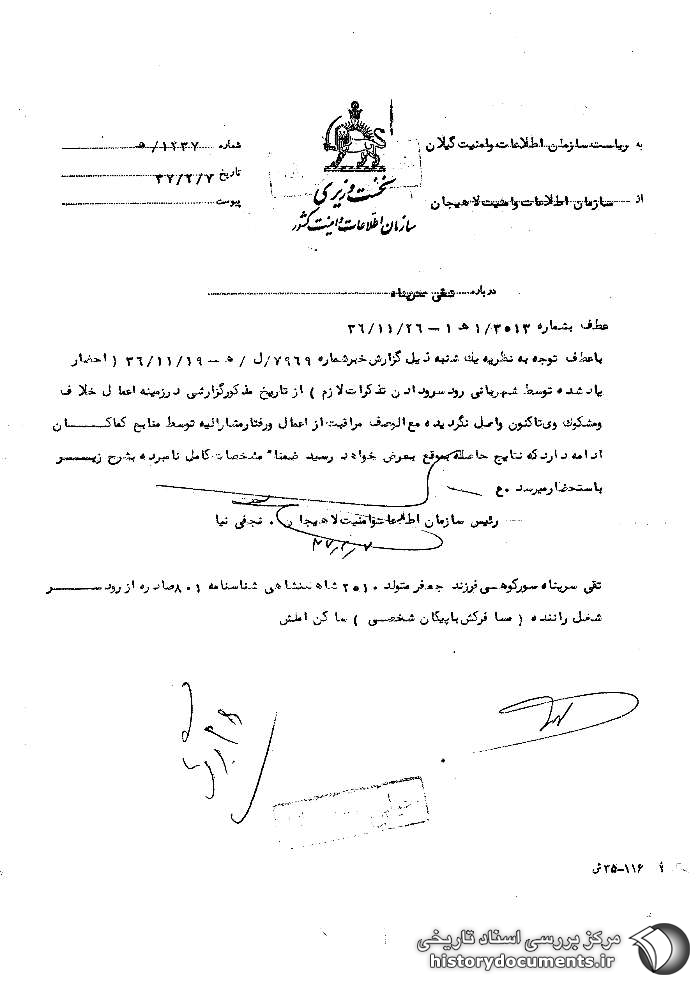 به ریاست سازمان اطلاعات وامنیت گیلان
از سازمان اطلاعات وامنیت لاهیجان
نخست وزیری
سازمان اطلاعات و امنیت کشور
شماره ۱۲۳۷/ه
تاریخ ۳۷/۲/۷
پیوست
درباره تقی سرپناه
عطف بشماره ۱/۳۰۱۳ ه ۱ - ۳۶/۱۱/۲۶
باعطف توجه به نظریه یک شنبه ذیل گزارش خبرشماره ۷۹۶۹/ل/ه - ۳۶/۱۱/۱۹ ( احضار
یاد شده توسط شهربانی رودسرودادن تذکرات لازم ) از تاریخ مذکورگزارشی درزمینه اعمال خلاف
ومشکوک وی تاکنون واصل نگردیده مع الوصف مراقبت از اعمال ورفتارمشارالیه توسط منابع کماکان
ادامه داردکه نتایج حاصله بموقع بعرض خواهد رسید ضمنا" مشخصات کامل نامبرده بشرح زیر
باستحضارمیرسد . ع
رئیس سازمان اطلاعات وامنیت لاهیجان . نجفی نیا
۳۷/۲/۷
تقی سرپناه سورکوهی فرزند جعفر متولد ۲۵۱۰ شاهنشاهی شناسنامه ۸۰۱ صادره از رودسر
شغل راننده ( مسافرکش باپیکان شخصی ) ساکن املش
۳۵-۱۱۶ ش
مرکز بررسی اسناد تاریخی
historydocuments.ir